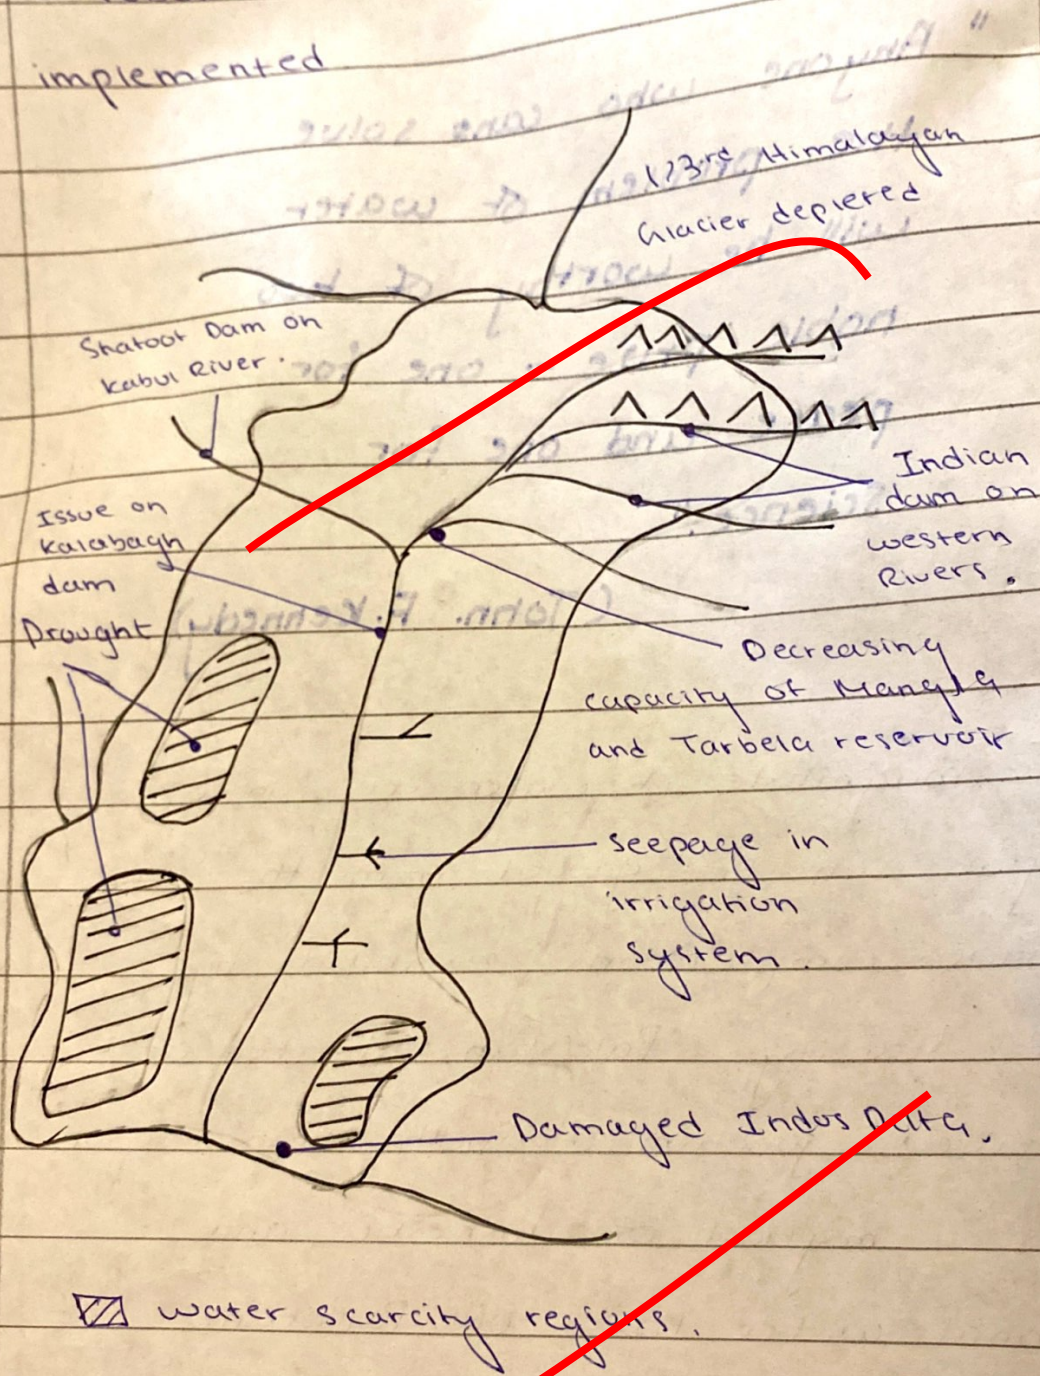 implemented
1/3rd Himalayan
Glacier depleted
Shatoot Dam on
Kabul River.
Indian
dam on
western
Rivers.
Issue on
Kalabagh
dam
Drought
Decreasing
capacity of Mangla
and Tarbela reservoir
seepage in
irrigation
system.
Damaged Indus Delta.
water scarcity regions.